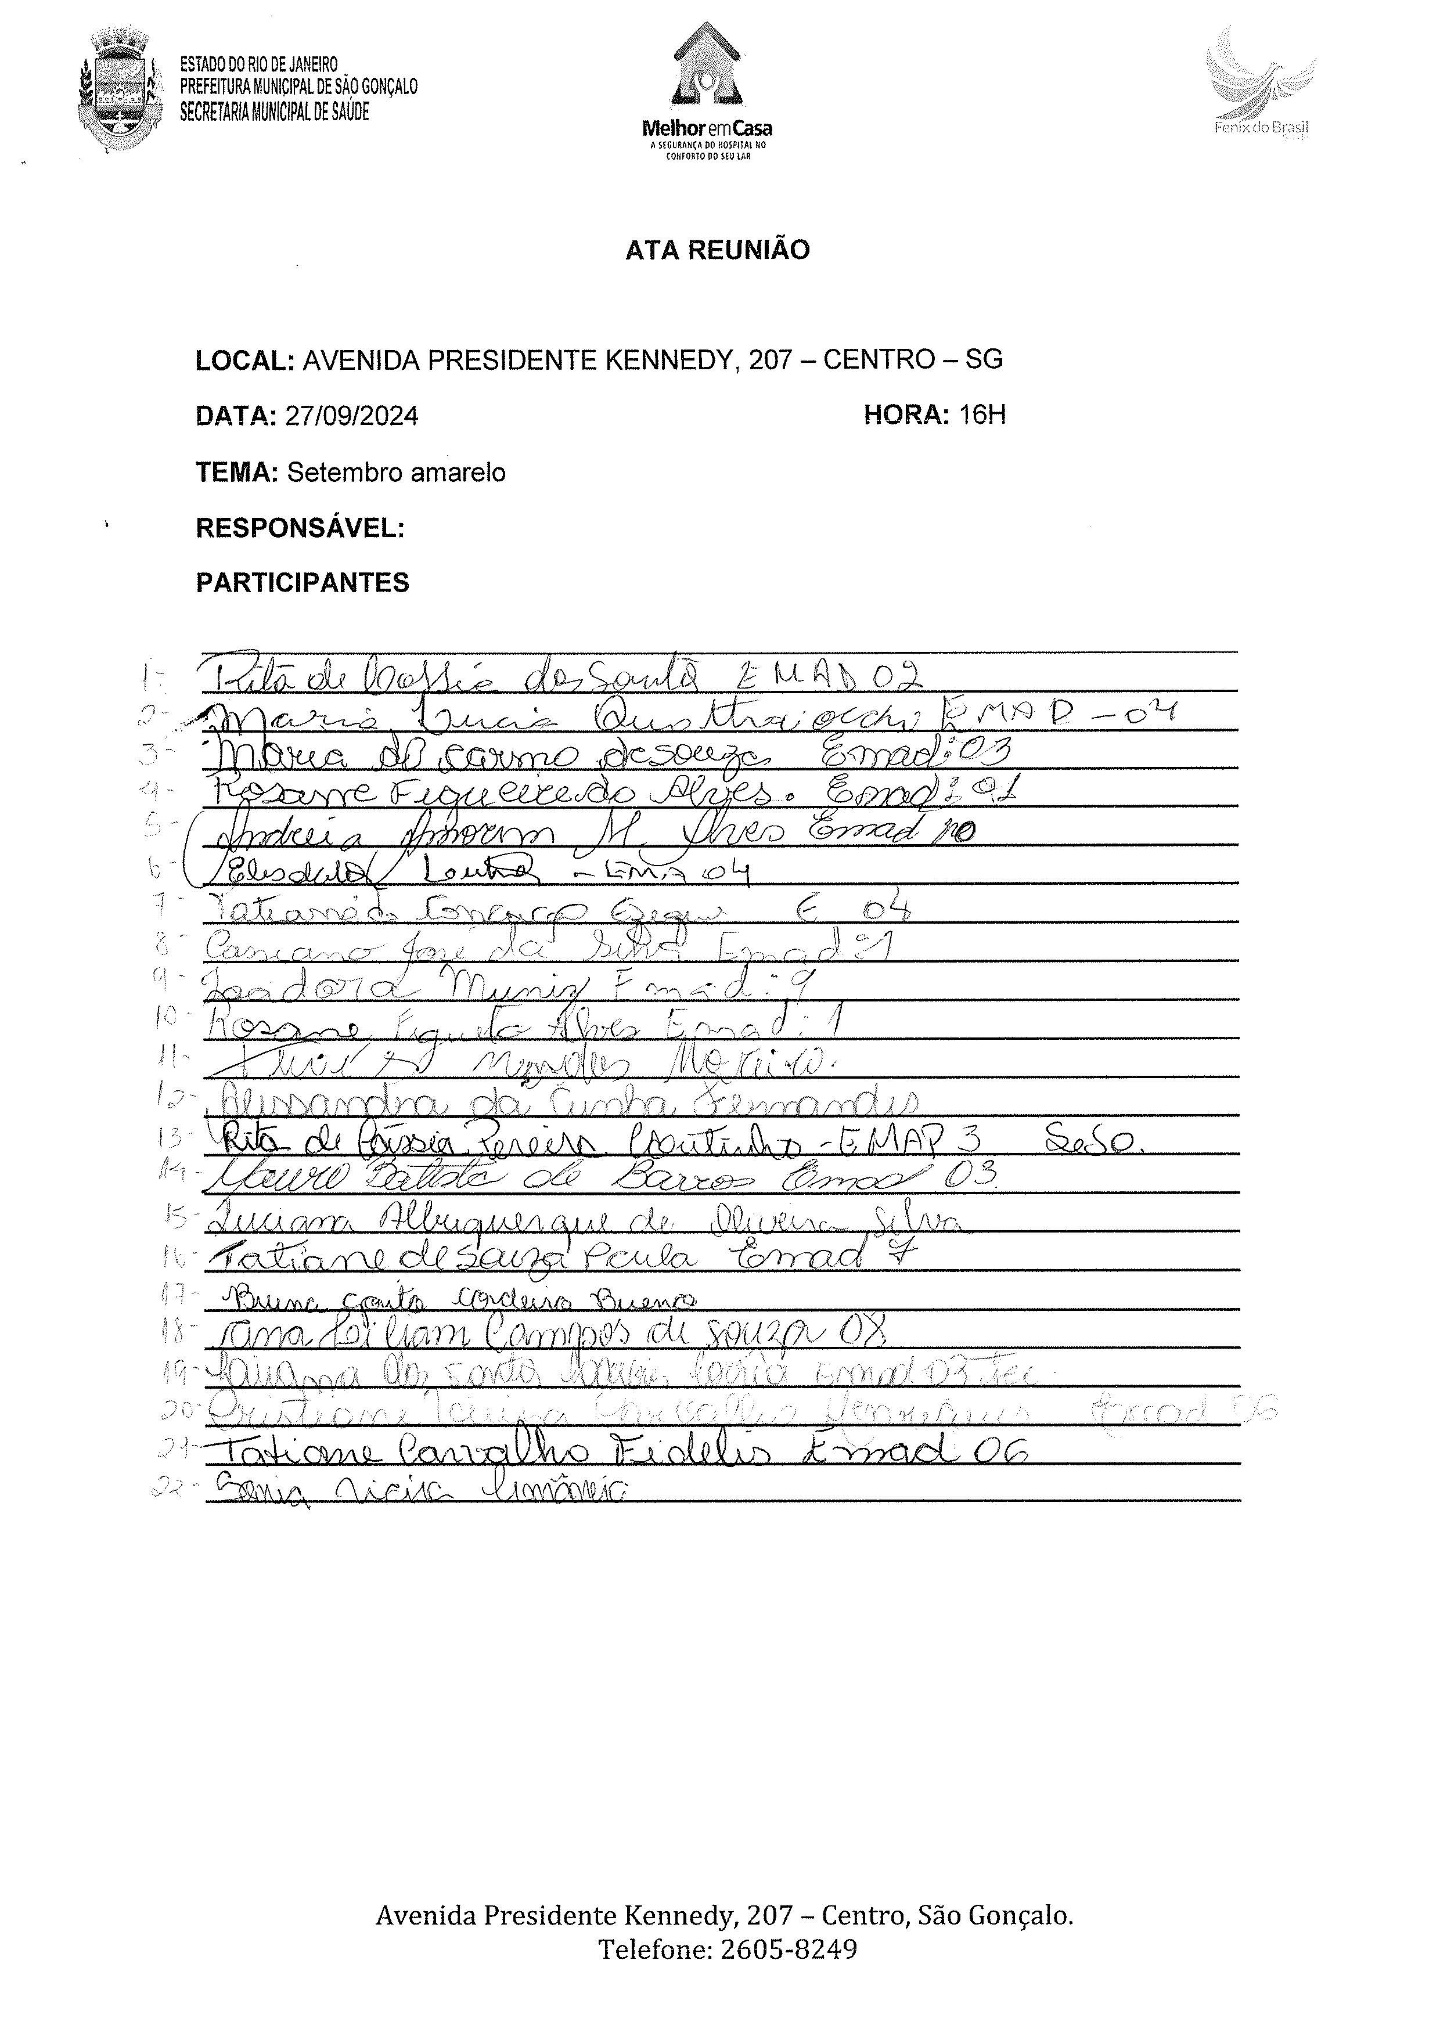 ESTADO DO RIO DE JANEIRO
PREFEITURA MUNICIPAL DE SÃO GONÇALO
SECRETARIA MUNICIPAL DE SAÚDE
Melhor em Casa
A SEGURANÇA DO HOSPITAL NO
CONFORTO DO SEU LAR
Fenix do Brasil
ATA REUNIÃO
LOCAL: AVENIDA PRESIDENTE KENNEDY, 207 – CENTRO – SG
DATA: 27/09/2024 HORA: 16H
TEMA: Setembro amarelo
RESPONSÁVEL:
PARTICIPANTES
1- Rita de Cassia dos Santos EMAD 02
2- Maria Lucia EMAD - 04
3- Maria do Carmo de souza Emad: 03
4- Rosane Figueiredo Alves. Emad: 01
5- Andreia Amorim M. Alves Emad 10
6- 04
7- E 04
8- Cassiano José da Silva Emad: 1
9- Isadora Muniz Emad: 9
10- Rosane Alves Emad: 1
11- Mendes
12- Alessandra da Cunha Fernandes
13- Rita de Cássia Pereira Coutinho - EMAP 3 SeSo.
14- Mauro Batista de Barros Emad 03
15- Luciana Albuquerque de Oliveira Silva
16- Tatiane de Souza Paula Emad 7
17- Bruna Couto Cordeiro Bueno
18- Ana Lilliam Campos de Souza 08
19- Emad 03 Tec
20- Cristiane Carvalho Emad 06
21- Tatiane Carvalho Fidelis Emad 06
22- Sonia
Avenida Presidente Kennedy, 207 – Centro, São Gonçalo.
Telefone: 2605-8249